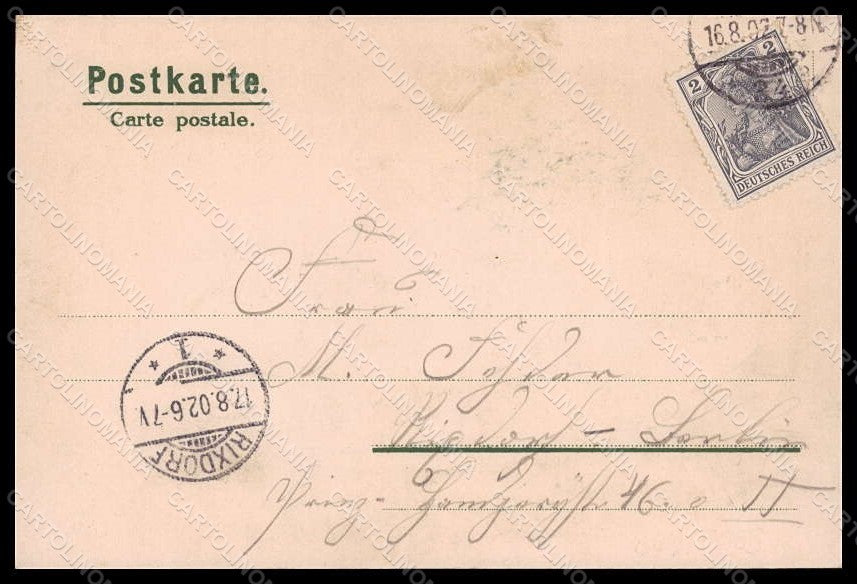 Postkarte.
Carte postale.
16.8.02.7-8N.
2
2
DEUTSCHES REICH
Frau
M.
Rixdorf - Berlin
Prinz-Handjerystr 46. II
1
17.8.02.6-7V
RIXDORF
CARTOLINOMANIA